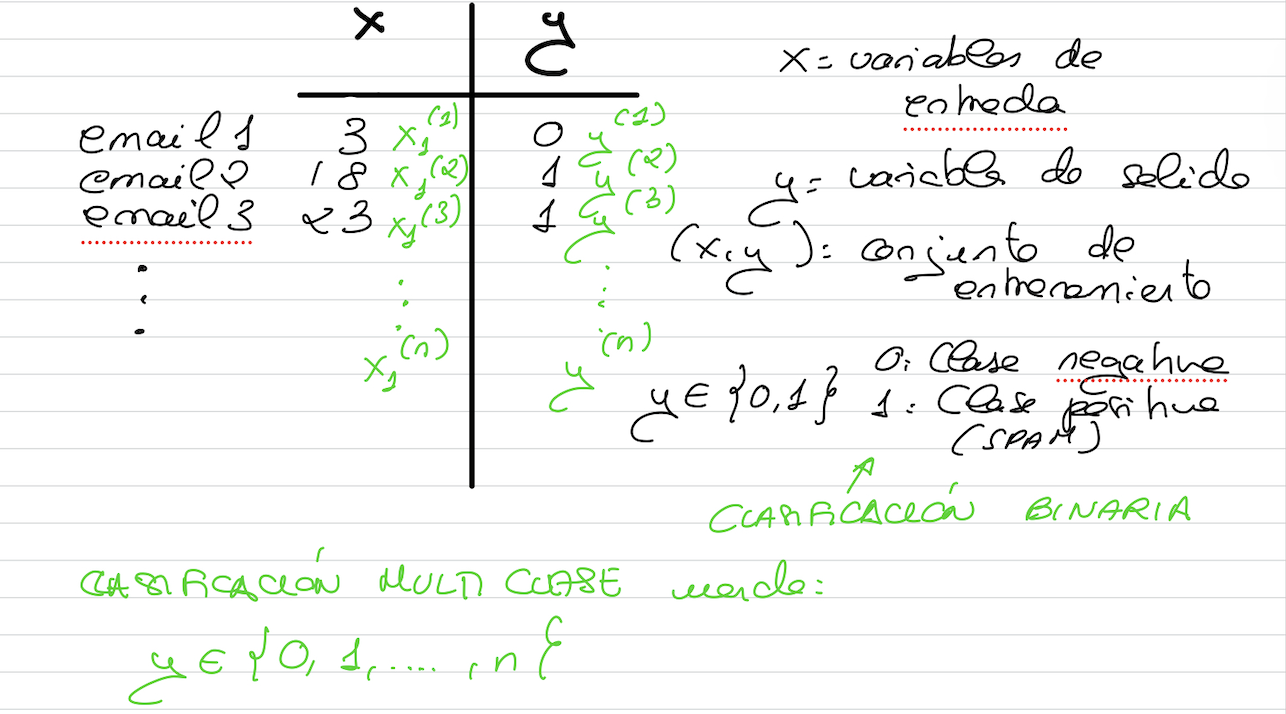 x y
email 1 3 x₁⁽¹⁾ 0 y⁽¹⁾
email 2 18 x₁⁽²⁾ 1 y⁽²⁾
email 3 23 x₁⁽³⁾ 1 y⁽³⁾
⋮ ⋮ ⋮
x₁⁽ⁿ⁾ y⁽ⁿ⁾
x = variables de
entrada
y = variable de salida
(x, y): conjunto de
entrenamiento
y ∈ {0,1} 0: Clase negativa
1: Clase positiva
(SPAM)
CLASIFICACIÓN BINARIA
CLASIFICACIÓN MULTICLASE
y ∈ {0, 1, ...., n}